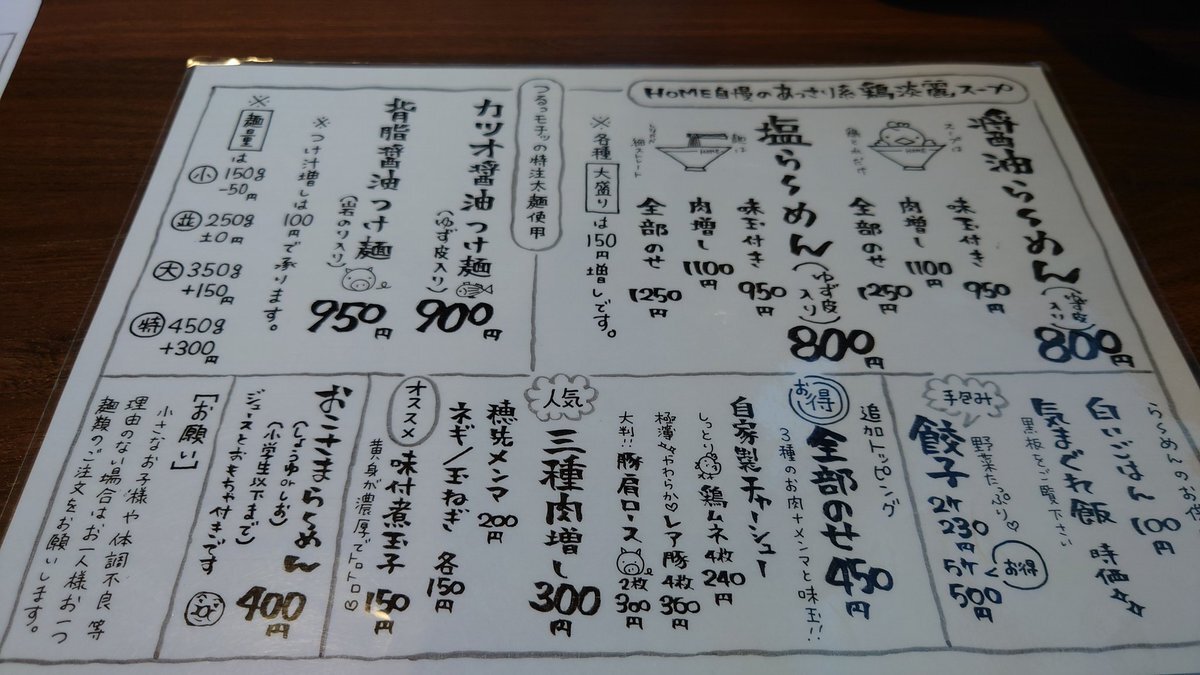 HOME自慢のあっさり系鶏淡麗スープ
醤油らぁめん
(ゆず皮入り)
800円
味玉付き 950円
肉増し 1100円
全部のせ 1250円
スープは
鶏と水だけ
塩らぁめん
(ゆず皮入り)
800円
味玉付き 950円
肉増し 1100円
全部のせ 1250円
麺は
細ストレート
HOME
※各種大盛りは150円増しです。
つるっモチッの特注太麺使用
カツオ醤油つけ麺
(ゆず皮入り)
900円
背脂醤油つけ麺
(岩のり入り)
950円
※つけ汁増しは100円で承ります。
※麺量は
小 150g
-50円
並 250g
±0円
大 350g
+150円
特 450g
+300円
らぁめんのお供
白いごはん 100円
気まぐれ飯 時価☆☆
黒板をご覧下さい
手包み
餃子
野菜たっぷり♡
2ケ 230円
5ケ 500円
お得
追加トッピング
お得
全部のせ 450円
3種のお肉+メンマと味玉!!
自家製チャーシュー
しっとり 鶏ムネ 4枚 240円
極薄☆やわらか♡レア豚 4枚 360円
大判!!豚肩ロース 2枚 300円
人気
三種肉増し 300円
穂先メンマ 200円
ネギ/玉ねぎ 各150円
オススメ
味付煮玉子 150円
黄身が濃厚でトロトロ♡
おこさまらぁめん 400円
(しょうゆorしお)
(小学生以下まで)
ジュースとおもちゃ付きです
[お願い]
小さなお子様や体調不良 等
理由のない場合はお一人様お一つ
麺類のご注文をお願いします。